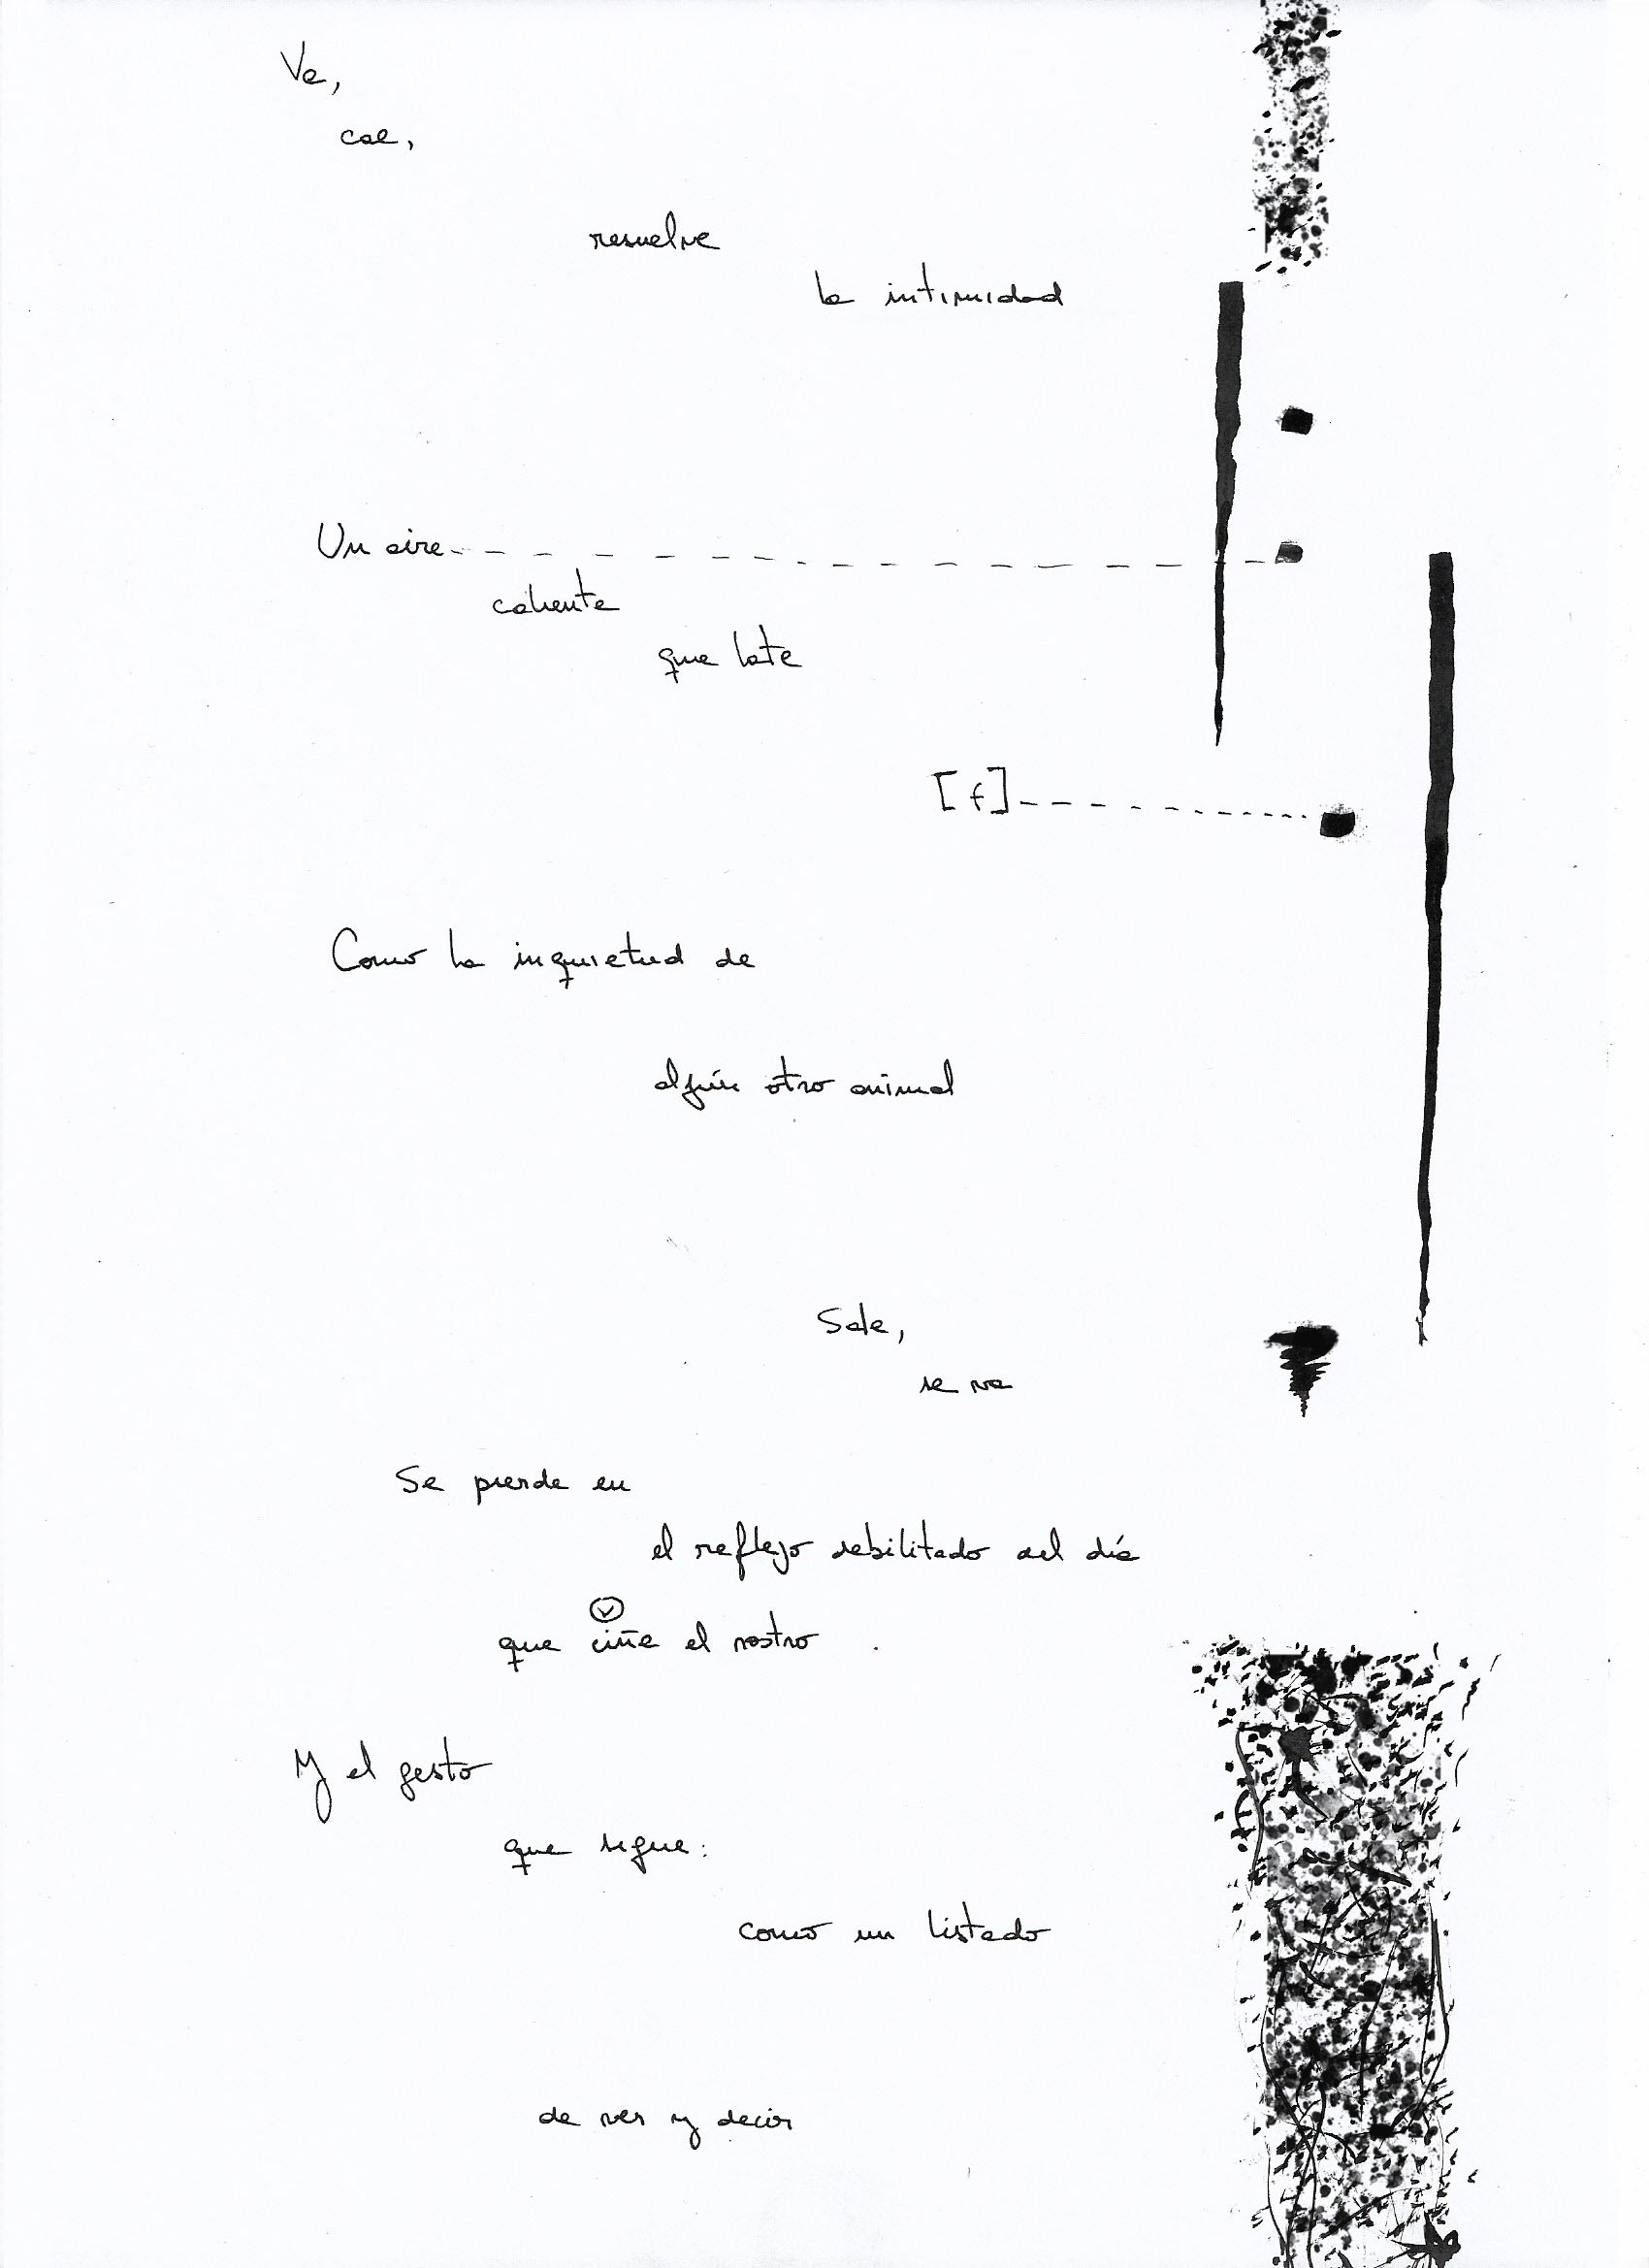 Va,
cae,
resuelve
la intimidad
Un aire
caliente
que late
[f]
Como la inquietud de
algún otro animal
Sale,
se va
Se pierde en
el reflejo debilitado del día
que ciñe el rostro .
Y el gesto
que sigue:
como un listado
de ver y decir